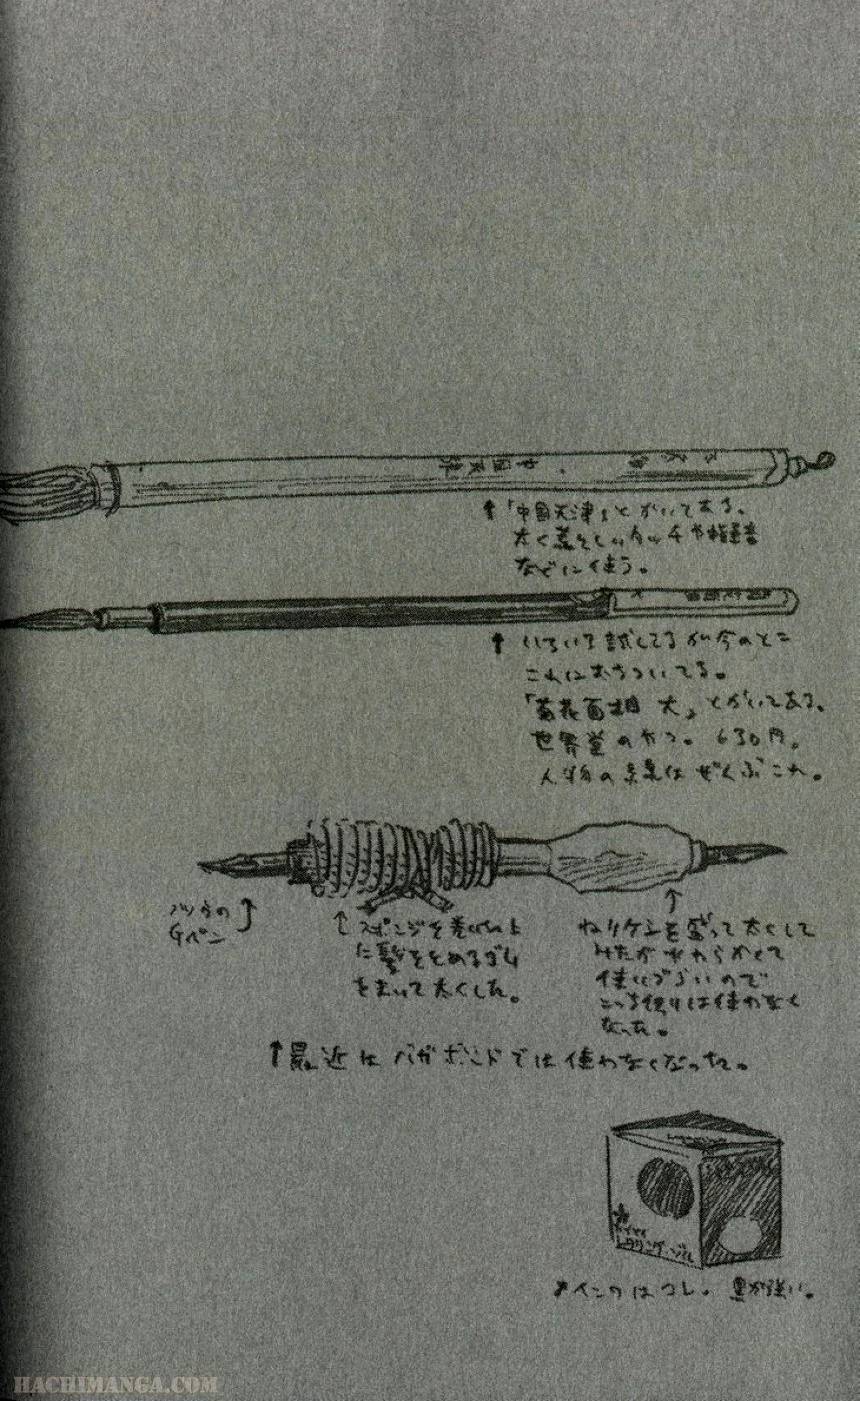 ↑「中国天津」とかいてある。
太く荒々しいタッチや指墨書
などに使う。
↑ いろいろ試してるが今のとこ
これにおちついてる。
「 面相 大」とかいてある。
世界堂のヤツ。630円。
人物の はぜんぶこれ。
フツウの
Gペン
↑スポンジを巻いた上
に髪をとめるゴム
をまいて太くした。
ねりケシを盛って太くして
みたがやわらかくて
使いづらいので
こっち側は使わなく
なった。
↑最近はバガボンドでは使わなくなった。
レタリング・ゾル
↗インクはコレ。黒が強い。
HACHIMANGA.COM